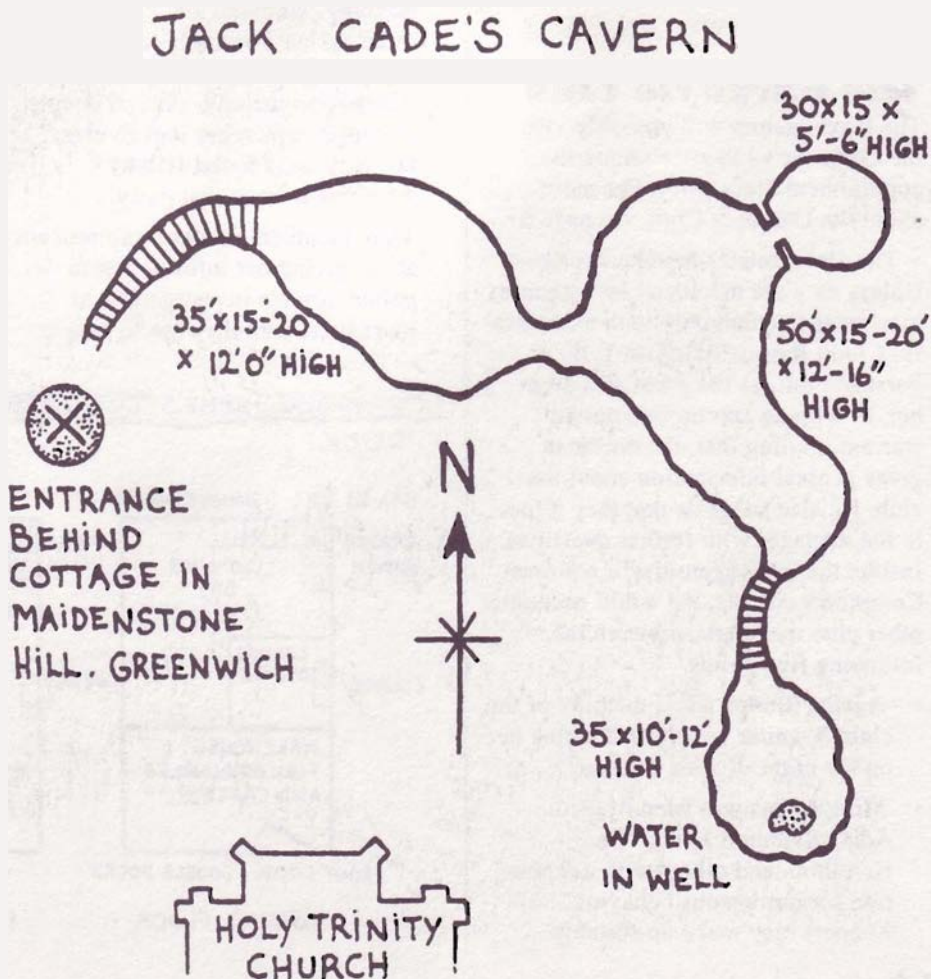 JACK CADE'S CAVERN
30x15 x
5'-6" HIGH
35'x15-20
x 12'0" HIGH
50x15'-20'
x12'-16"
HIGH
N
ENTRANCE
BEHIND
COTTAGE IN
MAIDENSTONE
HILL. GREENWICH
35x10'-12'
HIGH
WATER
IN WELL
HOLY TRINITY
CHURCH